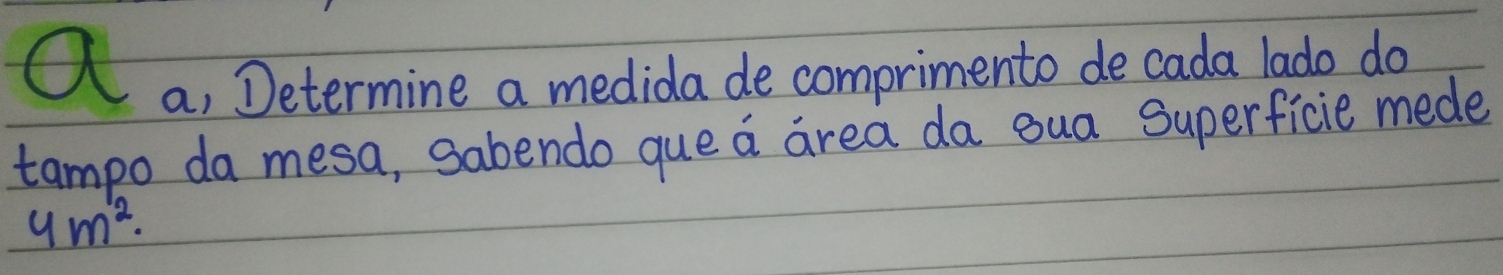 a a, Determine a medida de comprimento de cada lado do
tampo da mesa, sabendo que á área da sua superfície mede
4m².